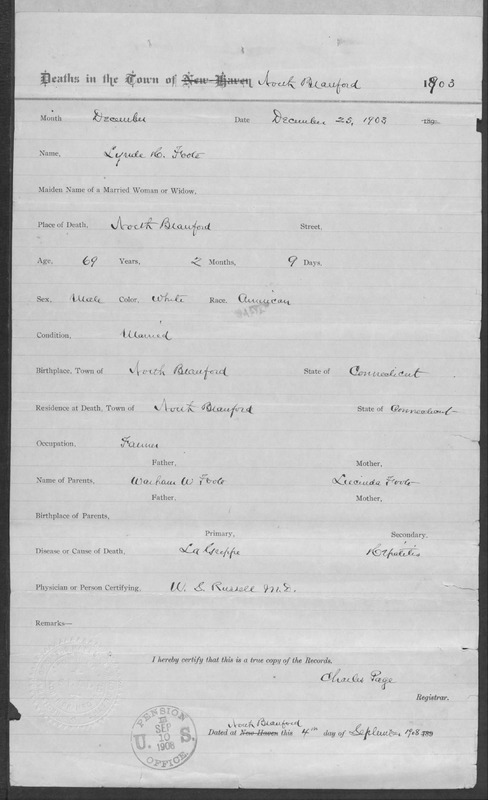 Deaths in the Town of New Haven North Branford 1903
Month December Date December 25, 1903 189
Name, H. Foote
Maiden Name of a Married Woman or Widow,
Place of Death, North Branford Street,
Age, 69 Years, 2 Months, 9 Days.
Sex, Male Color, White Race, American
Condition, Married
Birthplace, Town of North Branford State of Connecticut
Residence at Death, Town of North Branford State of Connecticut
Occupation, Farmer
Father, Mother,
Name of Parents, Warham W Foote Lucinda Foote
Father, Mother,
Birthplace of Parents,
Primary, Secondary.
Disease or Cause of Death, La Grippe Hepatitis
Physician or Person Certifying, W. S. Russell M.D.
Remarks—
I hereby certify that this is a true copy of the Records.
Charles Page
Registrar.
North Branford
Dated at New Haven this 4th day of September 1908 189
U. S. PENSION OFFICE SEP 10 1908